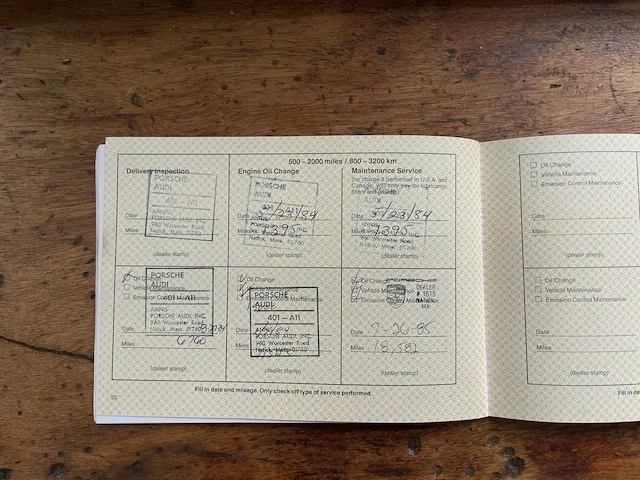 500 - 2000 miles / 800 - 3200 km
Delivery Inspection
PORSCHE
AUDI
401 - A11
ANNIS
PORSCHE AUDI, INC.
960 Worcester Road
Natick, Mass. 01760
Date
Miles
(dealer stamp)
Engine Oil Change
PORSCHE
AUDI
401 - A11
Date 5/23/84
Miles 1395
Natick, Mass. 01760
(dealer stamp)
Maintenance Service
(no charge if performed in U.S.A. and
Canada, you only pay for lubricants,
filters and gaskets)
AUDI
Date 5/23/84
Miles 1395
960 Worcester Road
Natick, Mass. 01760
(dealer stamp)
Oil Change
Vehicle Maintenance
Emission Control Maintenance
PORSCHE
AUDI
401 - A11
ANNIS
PORSCHE AUDI, INC.
960 Worcester Road
Natick, Mass. 01760
Date
Miles 6760
(dealer stamp)
Oil Change
Vehicle Maintenance
PORSCHE
AUDI
401 - A11
ANNIS
PORSCHE AUDI, INC.
960 Worcester Road
Natick, Mass. 01760
Date
Miles
(dealer stamp)
Oil Change
Vehicle Maintenance
Emission Control Maintenance
DEALER
# 1615
NATICK
MA
Date 7-26-85
Miles 18,582
(dealer stamp)
Fill in date and mileage. Only check off type of service performed.
20
Oil Change
Vehicle Maintenance
Emission Control Maintenance
Date
Miles
(dealer stamp)
Oil Change
Vehicle Maintenance
Emission Control Maintenance
Date
Miles
(dealer stamp)
Fill in